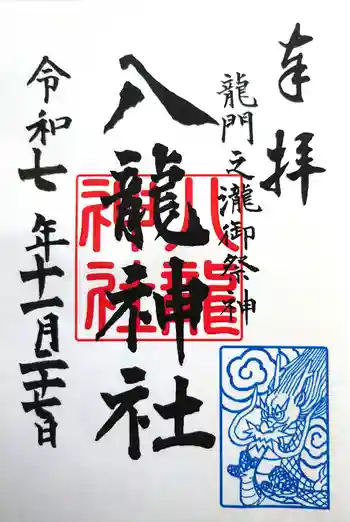 奉拝
龍門之瀧御祭神
八龍神社
八龍神社
令和七年十一月二十七日